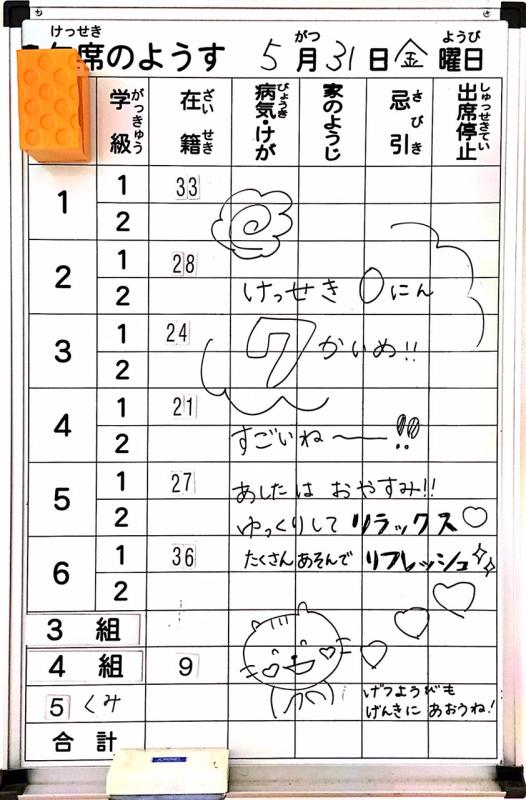 けっせき がつ ようび
席のようす 5月31日金曜日
がっきゅう ざいせき びょうき さびき しゅっせきていし
学級 在籍 病気・けが 家のようじ 忌引 出席停止
1 1 33
2
2 1 28
2 けっせき 0にん
3 1 24
2 7かいめ!!
4 1 21
2 すごいね〜!!
5 1 27 あしたは おやすみ!!
2 ゆっくりして リラックス♡
6 1 36 たくさんあそんで リフレッシュ
2
3 組
4 組 9
5 くみ げつようびも
げんきに あおうね!
合計